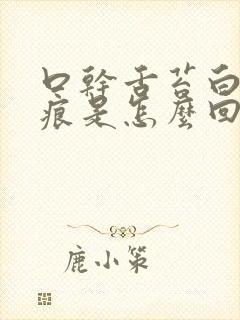 口幹舌苔白
痕是怎麼回
鹿小策